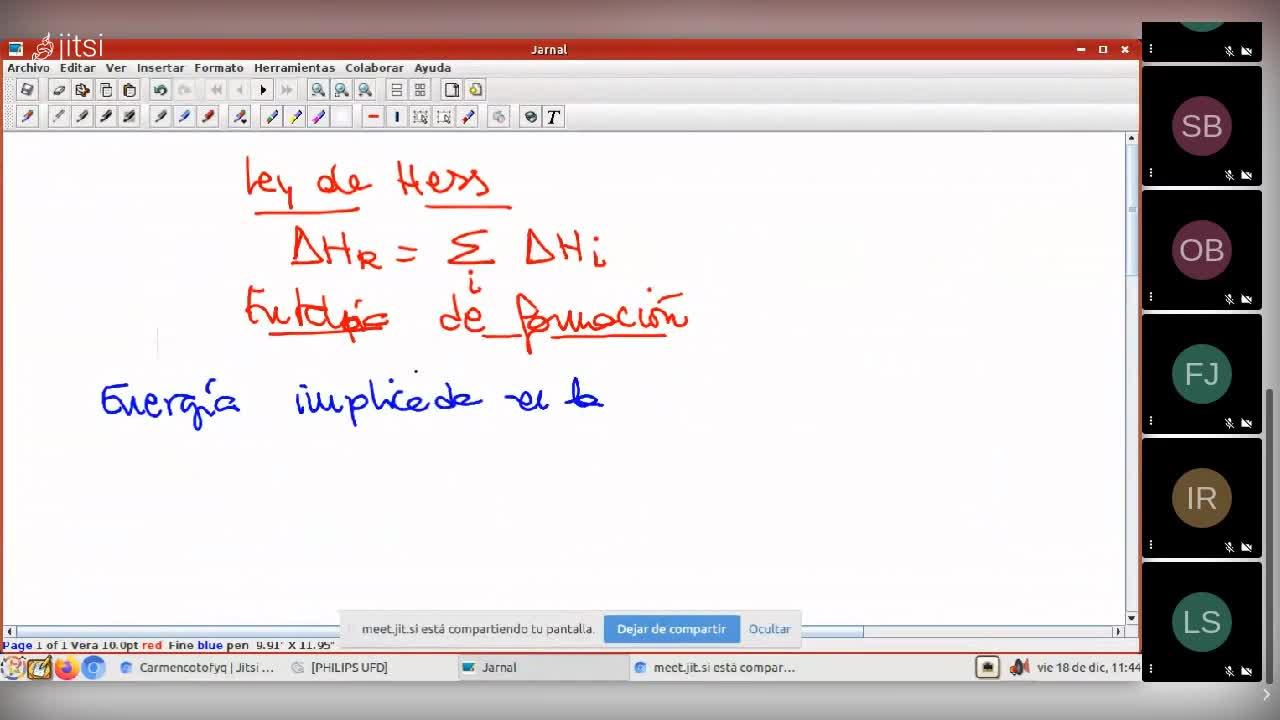 jitsi
Jarnal
Archivo Editar Ver Insertar Formato Herramientas Colaborar Ayuda
T
Ley de Hess
ΔHR = Σi ΔHi
Entalpía de formación
Energía implicada en la
meet.jit.si está compartiendo tu pantalla. Dejar de compartir Ocultar
Page 1 of 1 Vera 10.0pt red Fine blue pen 9.91" X 11.95"
Carmencotofyq | Jitsi ... [PHILIPS UFD] Jarnal meet.jit.si está compar... vie 18 de dic, 11:44
SB
OB
FJ
IR
LS